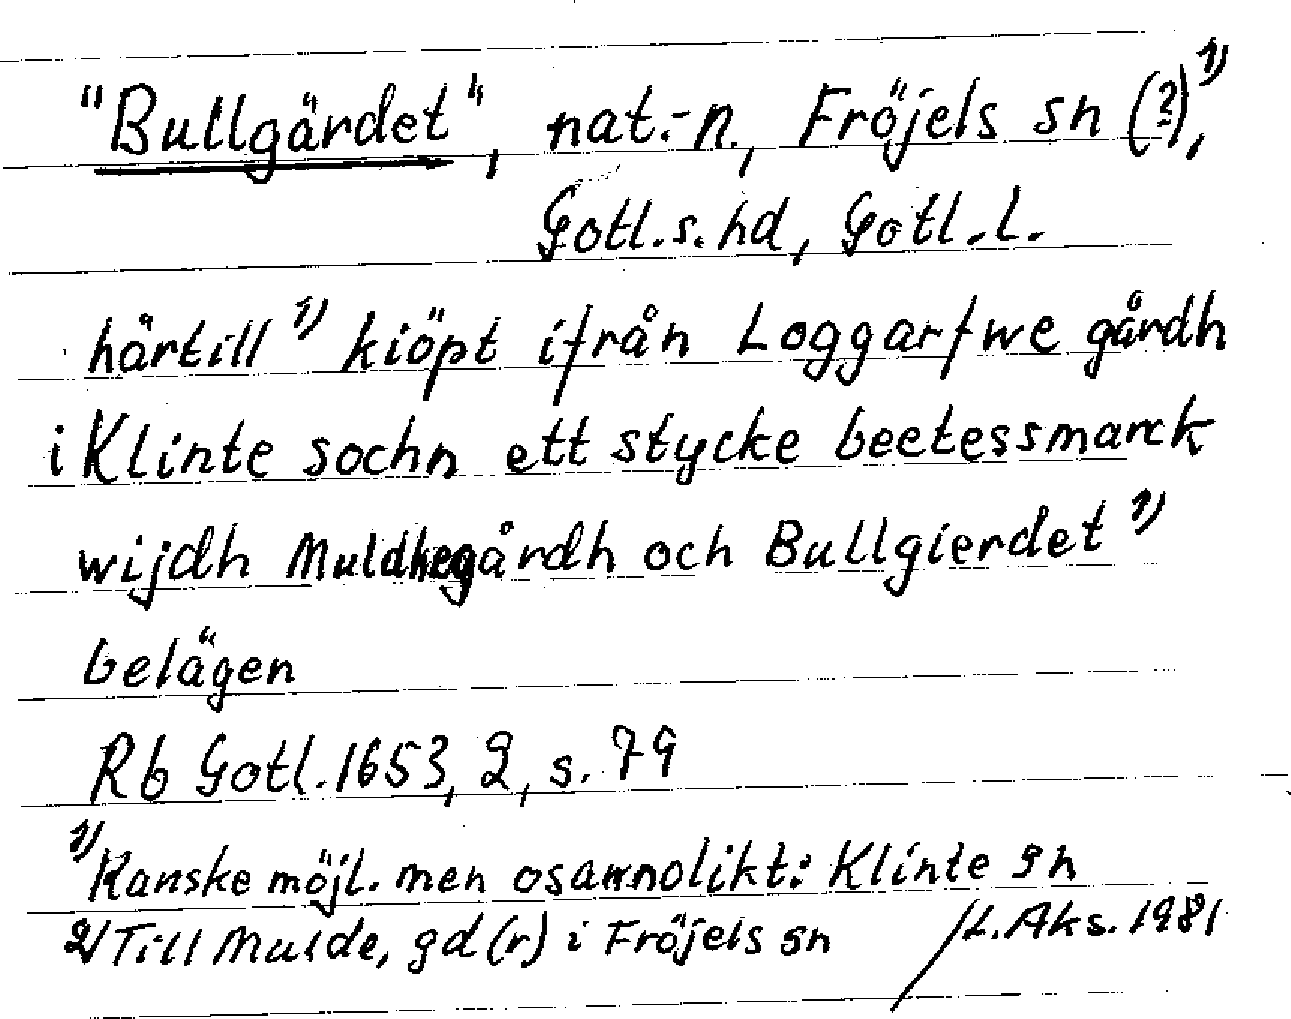 "Bullgärdet", nat.-n., Fröjels sn (?),¹⁾
Gotl.s.hd, Gotl.l.
härtill ¹⁾ kiöpt ifrån Loggarfwe gårdh
i Klinte sochn ett stycke beetessmarck
wijdh Muldhegårdh och Bullgierdet ¹⁾
belägen
Rb Gotl. 1653, 2, s. 79
¹⁾ Kanske möjl. men osannolikt: Klinte sn
2) Till Mulde, gd(r) i Fröjels sn /L. Aks. 1981